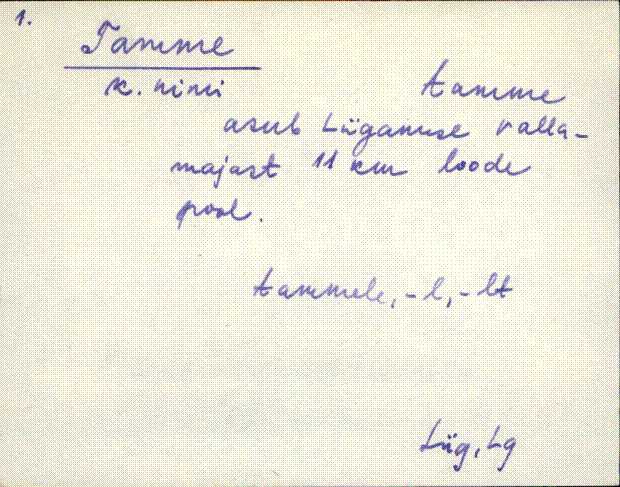 1.
Tamme
k. nimi tamme
asub Lüganuse valla-
majast 11 km loode
pool.
tammele, -l, -lt
Lüg, Lg